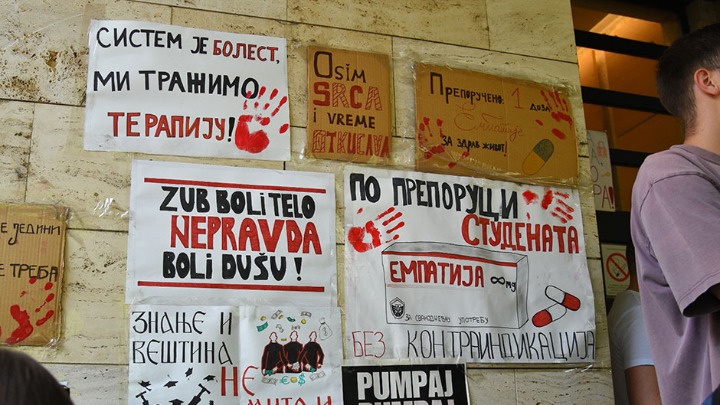 СИСТЕМ ЈЕ БОЛЕСТ,
МИ ТРАЖИМО
ТЕРАПИЈУ!
Osim
SRCA
I VREME
OTKUCAVA
Препоручено: 1 доза
Емпатије
ЗА ЗДРАВ ЖИВОТ!
ZUB BOLI TELO
NEPRAVDA
BOLI DUŠU!
ПО ПРЕПОРУЦИ
СТУДЕНАТА
ЕМПАТИЈА ∞mg
ЗА СВАКОДНЕВНУ УПОТРЕБУ
БЕЗ КОНТРАИНДИКАЦИЈА
ЈЕДИНИ
ТРЕБА
ЗНАЊЕ И
ВЕШТИНА
НЕ
PUMPAJ